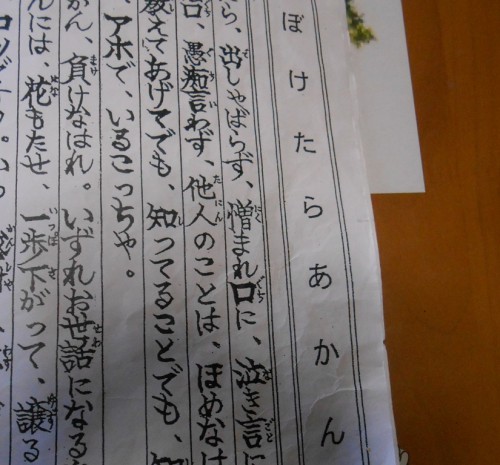 ぼけたらあかん
ら、出しゃばらず、憎まれ口に、泣き言に
愚痴言わず、他人のことは、ほめな
えてあげてでも、知ってることでも、知
アホで、いるこっちゃ。
かん、負けなはれ。いずれお世話になる
んには、花もたせ、一歩下がって、譲る